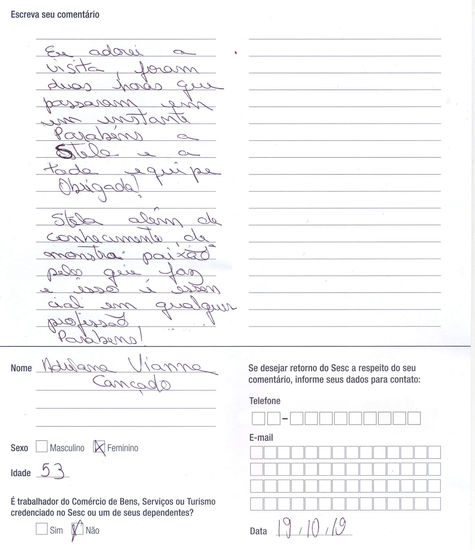 Escreva seu comentário
Eu adorei a
visita, foram
duas horas que
passaram em
um instante
Parabéns a
Stela e a
toda equipe
Obrigada!
Stela além de
conhecimento, de
monstra paixão
pelo que faz
e isso é essen
cial em qualquer
profissão
Parabens!
Nome Adriana Vianna
Cançado
Sexo Masculino Feminino
Idade 53
É trabalhador do Comércio de Bens, Serviços ou Turismo
credenciado no Sesc ou um de seus dependentes?
Sim Não
Se desejar retorno do Sesc a respeito do seu
comentário, informe seus dados para contato:
Telefone
–
E-mail
Data 19,10,19